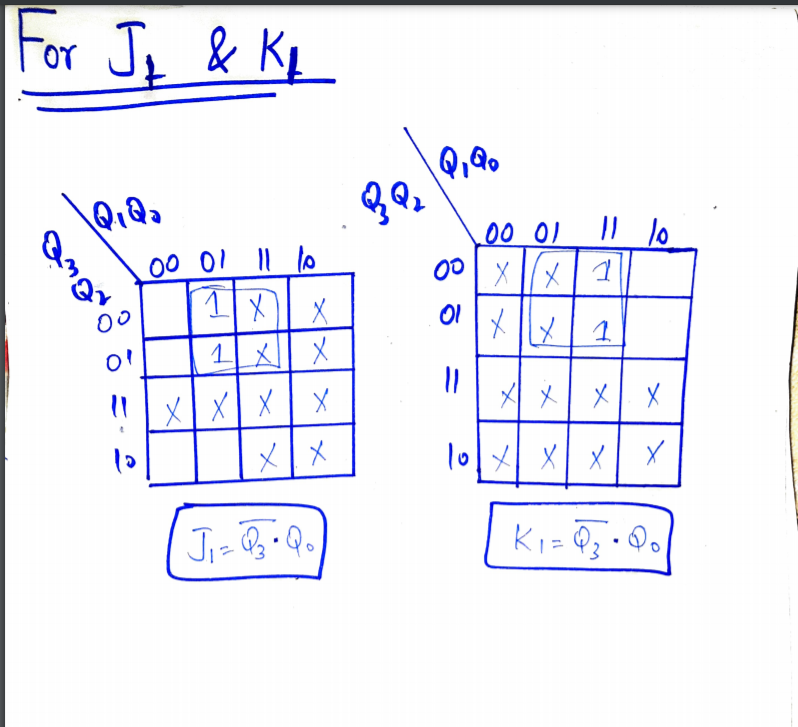 For J1 & K1
Q1Q0
Q3Q2
00 01 11 10
00 1 X X
01 1 X X
11 X X X X
10 X X
J1 = Q̅3 · Q0
Q1Q0
Q3Q2
00 01 11 10
00 X X 1
01 X X 1
11 X X X X
10 X X X X
K1 = Q̅3 · Q0